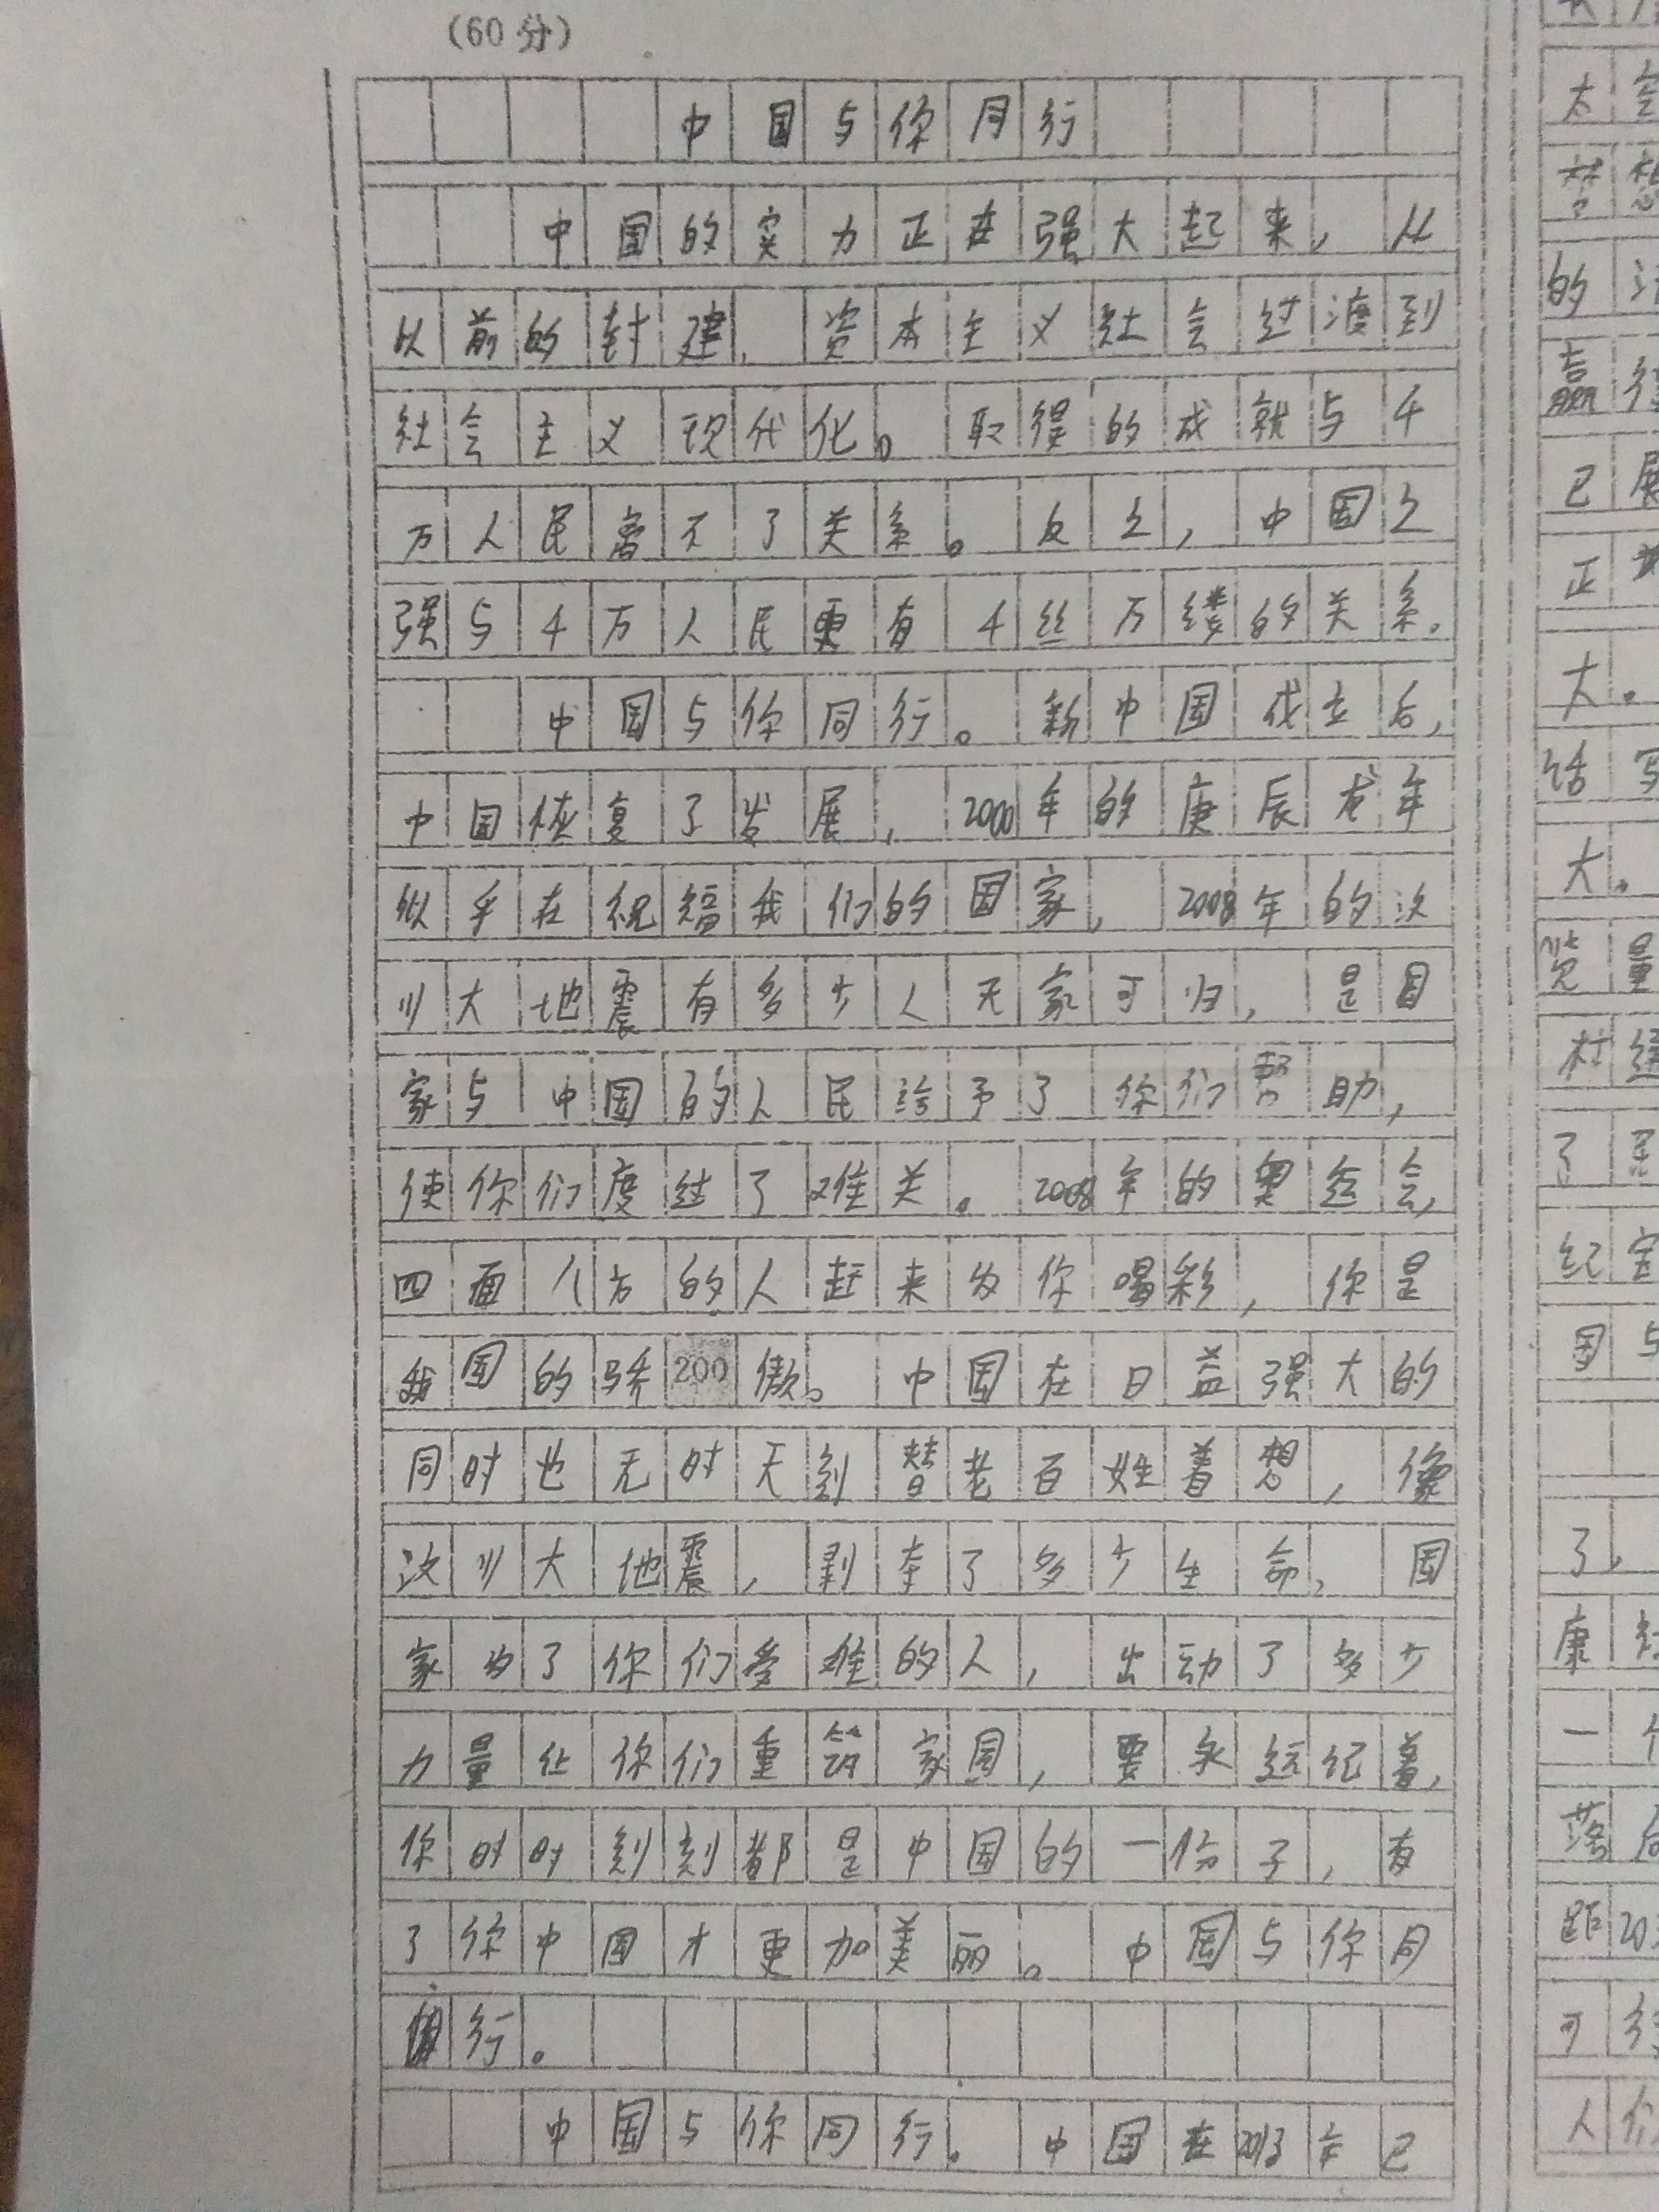 （60分）
中国与你同行
中国的实力正在强大起来，从
以前的封建、资本主义社会过渡到
社会主义现代化。取得的成就与千
万人民离不了关系。反之，中国之
强与千万人民更有千丝万缕的关系。
中国与你同行。新中国成立后，
中国恢复了发展，2000年的庚辰龙年
似乎在祝福我们的国家，2008年的汶
川大地震有多少人无家可归，是国
家与中国的人民给予了你们帮助，
使你们度过了难关。2008年的奥运会，
四面八方的人赶来为你喝彩，你是
我国的骄200傲。中国在日益强大的
同时也无时无刻替老百姓着想，像
汶川大地震，剥夺了多少生命，国
家为了你们受难的人，出动了多少
力量让你们重筑家园，要永远记着，
你时时刻刻都是中国的一份子，有
了你中国才更加美丽。中国与你同
行。
中国与你同行。中国在2013年已
太空
替想
的
赢得
已展
正
大。
话写
大。
览量
村
了
纪
国与
了，
康社
一个
落后
距20
可
人们